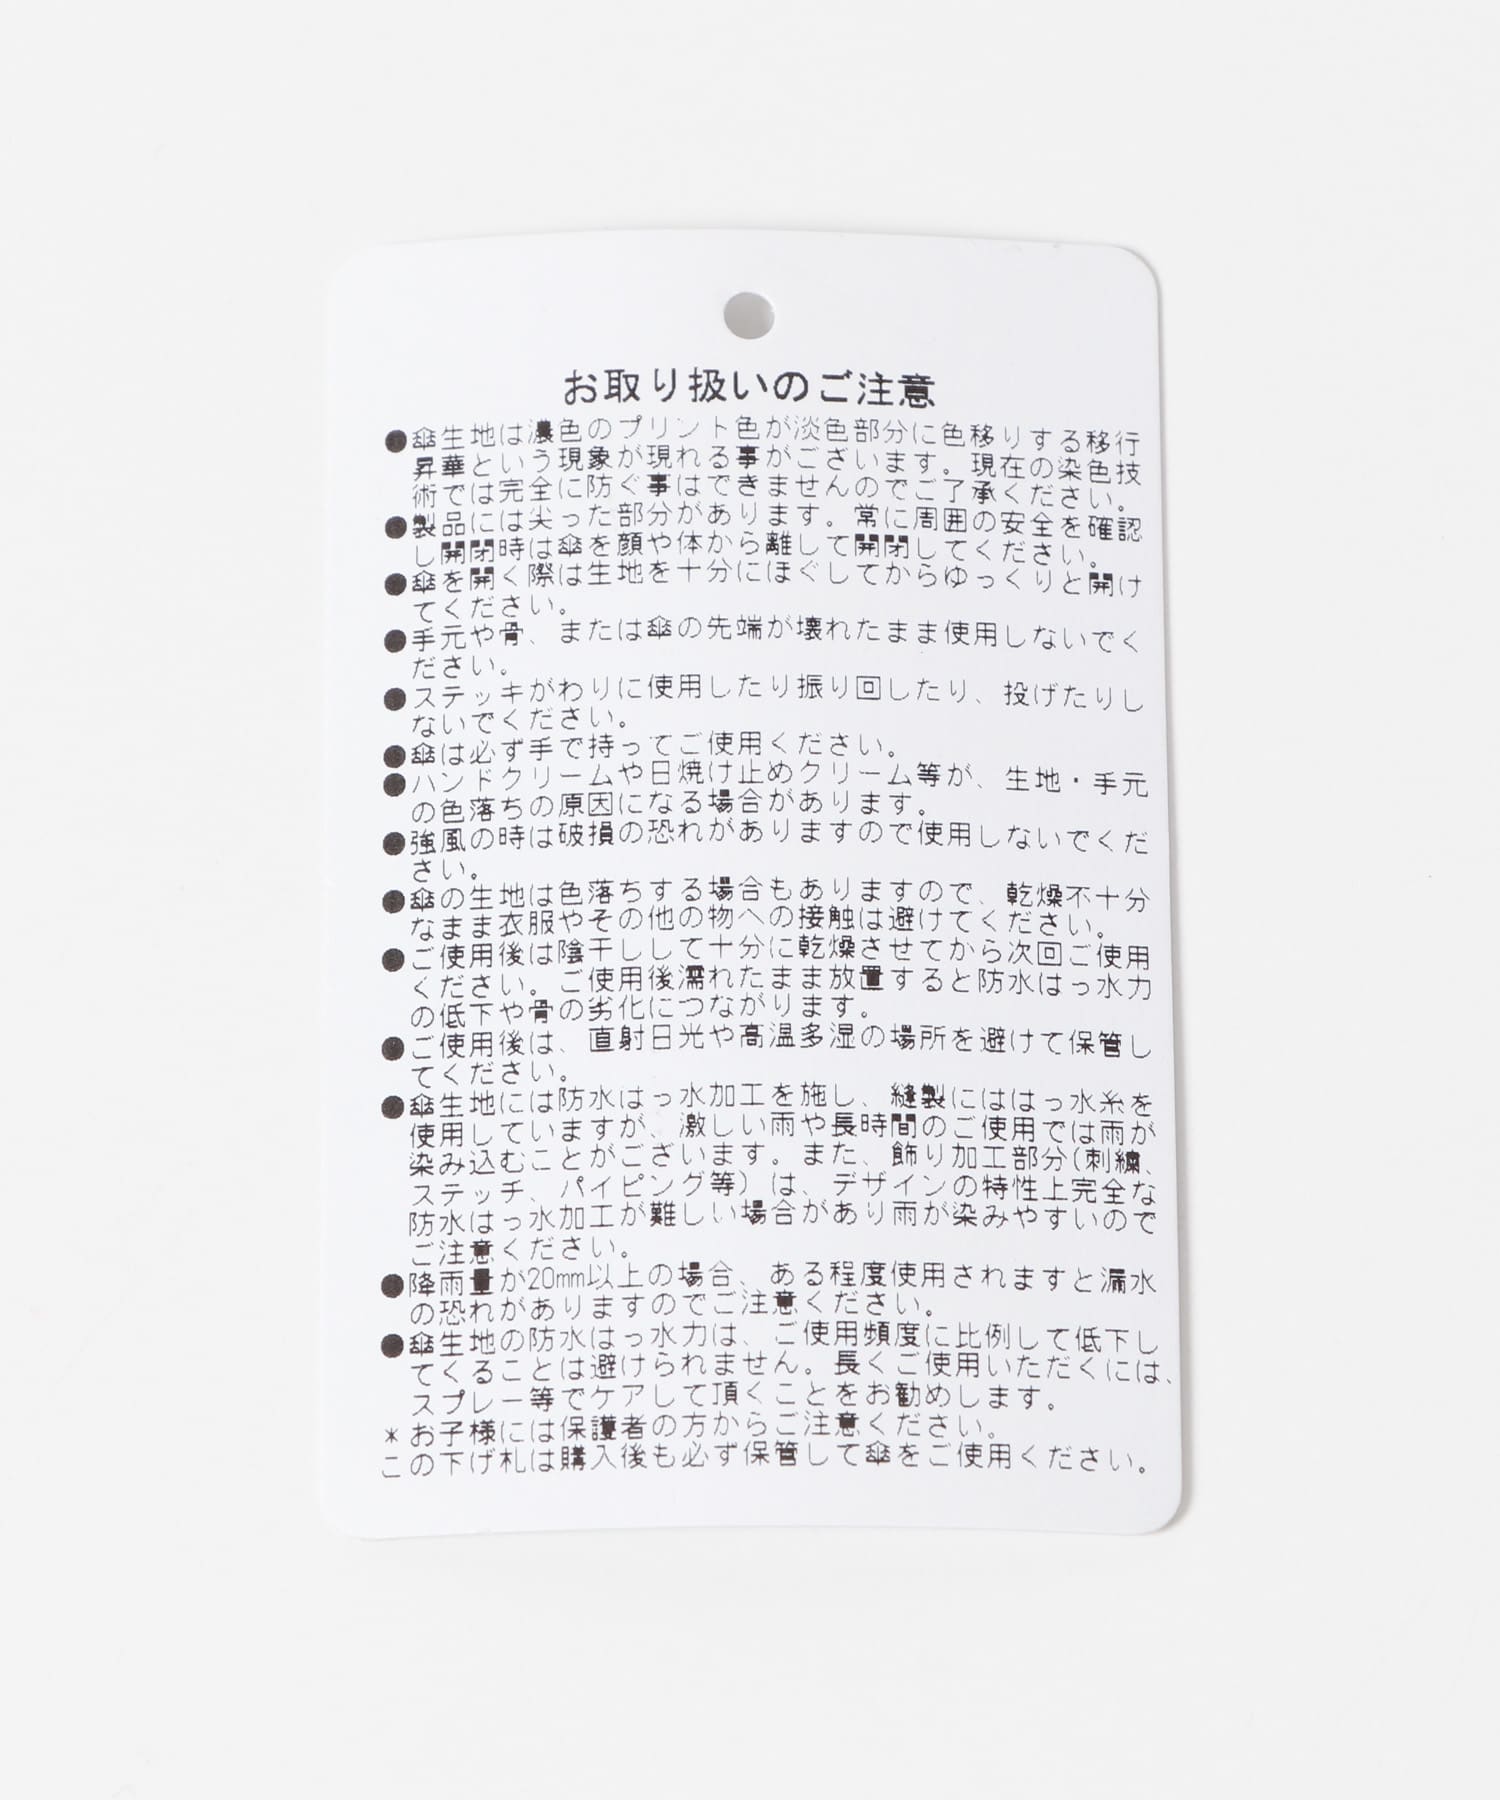 お取り扱いのご注意
●傘生地は濃色のプリント色が淡色部分に色移りする移行
昇華という現象が現れる事がございます。現在の染色技
術では完全に防ぐ事はできませんのでご了承ください。
●製品には尖った部分があります。常に周囲の安全を確認
し開閉時は傘を顔や体から離して開閉してください。
●傘を開く際は生地を十分にほぐしてからゆっくりと開け
てください。
●手元や骨、または傘の先端が壊れたまま使用しないでく
ださい。
●ステッキがわりに使用したり振り回したり、投げたりし
ないでください。
●傘は必ず手で持ってご使用ください。
●ハンドクリームや日焼け止めクリーム等が、生地・手元
の色落ちの原因になる場合があります。
●強風の時は破損の恐れがありますので使用しないでくだ
さい。
●傘の生地は色落ちする場合もありますので、乾燥不十分
なまま衣服やその他の物への接触は避けてください。
●ご使用後は陰干しして十分に乾燥させてから次回ご使用
ください。ご使用後濡れたまま放置すると防水はっ水力
の低下や骨の劣化につながります。
●ご使用後は、直射日光や高温多湿の場所を避けて保管し
てください。
●傘生地には防水はっ水加工を施し、縫製にははっ水糸を
使用していますが、激しい雨や長時間のご使用では雨が
染み込むことがございます。また、飾り加工部分(刺繍、
ステッチ、パイピング等)は、デザインの特性上完全な
防水はっ水加工が難しい場合があり雨が染みやすいので
ご注意ください。
●降雨量が20mm以上の場合、ある程度使用されますと漏水
の恐れがありますのでご注意ください。
●傘生地の防水はっ水力は、ご使用頻度に比例して低下し
てくることは避けられません。長くご使用いただくには、
スプレー等でケアして頂くことをお勧めします。
*お子様には保護者の方からご注意ください。
この下げ札は購入後も必ず保管して傘をご使用ください。